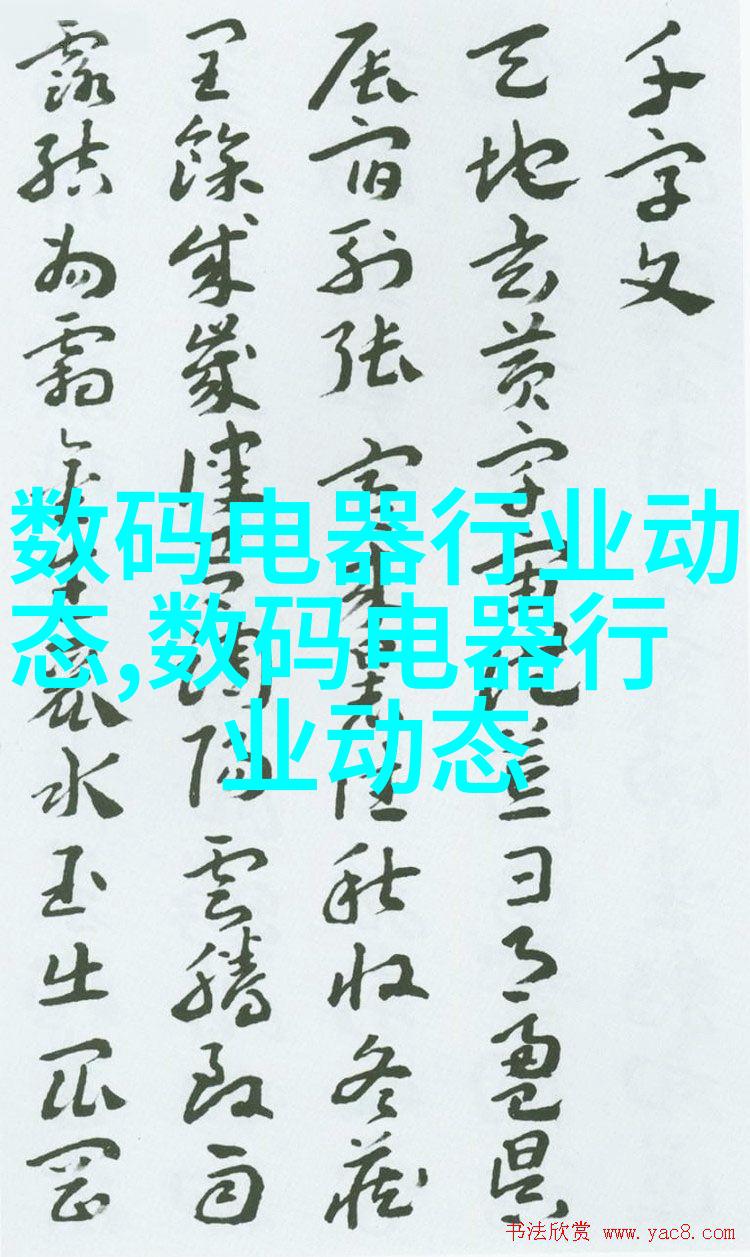 千字文
天地玄黃宇宙洪荒日月盈昃
辰宿列張寒來暑往秋收冬藏
閏餘成歲律呂調陽雲騰致雨
露結為霜金生麗水玉出昆岡
数码电器行业动
态,数码电器行
业动态
书法欣赏 www.yac8.com